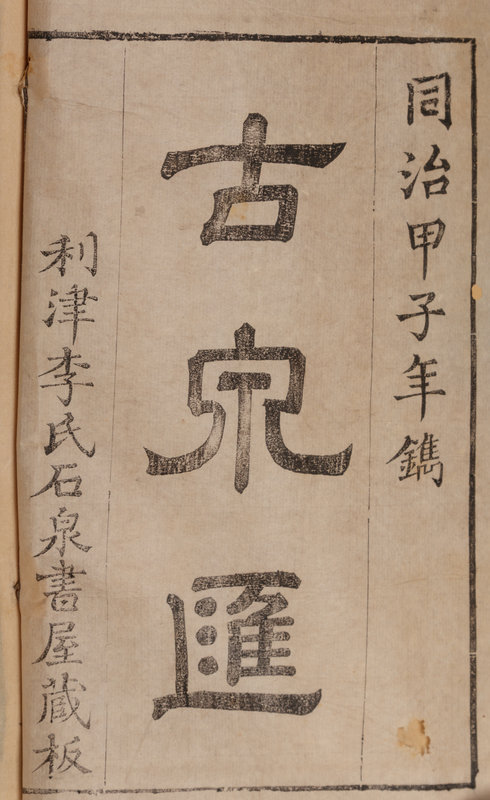 同治甲子年鐫
古泉匯
利津李氏石泉書屋蔵板